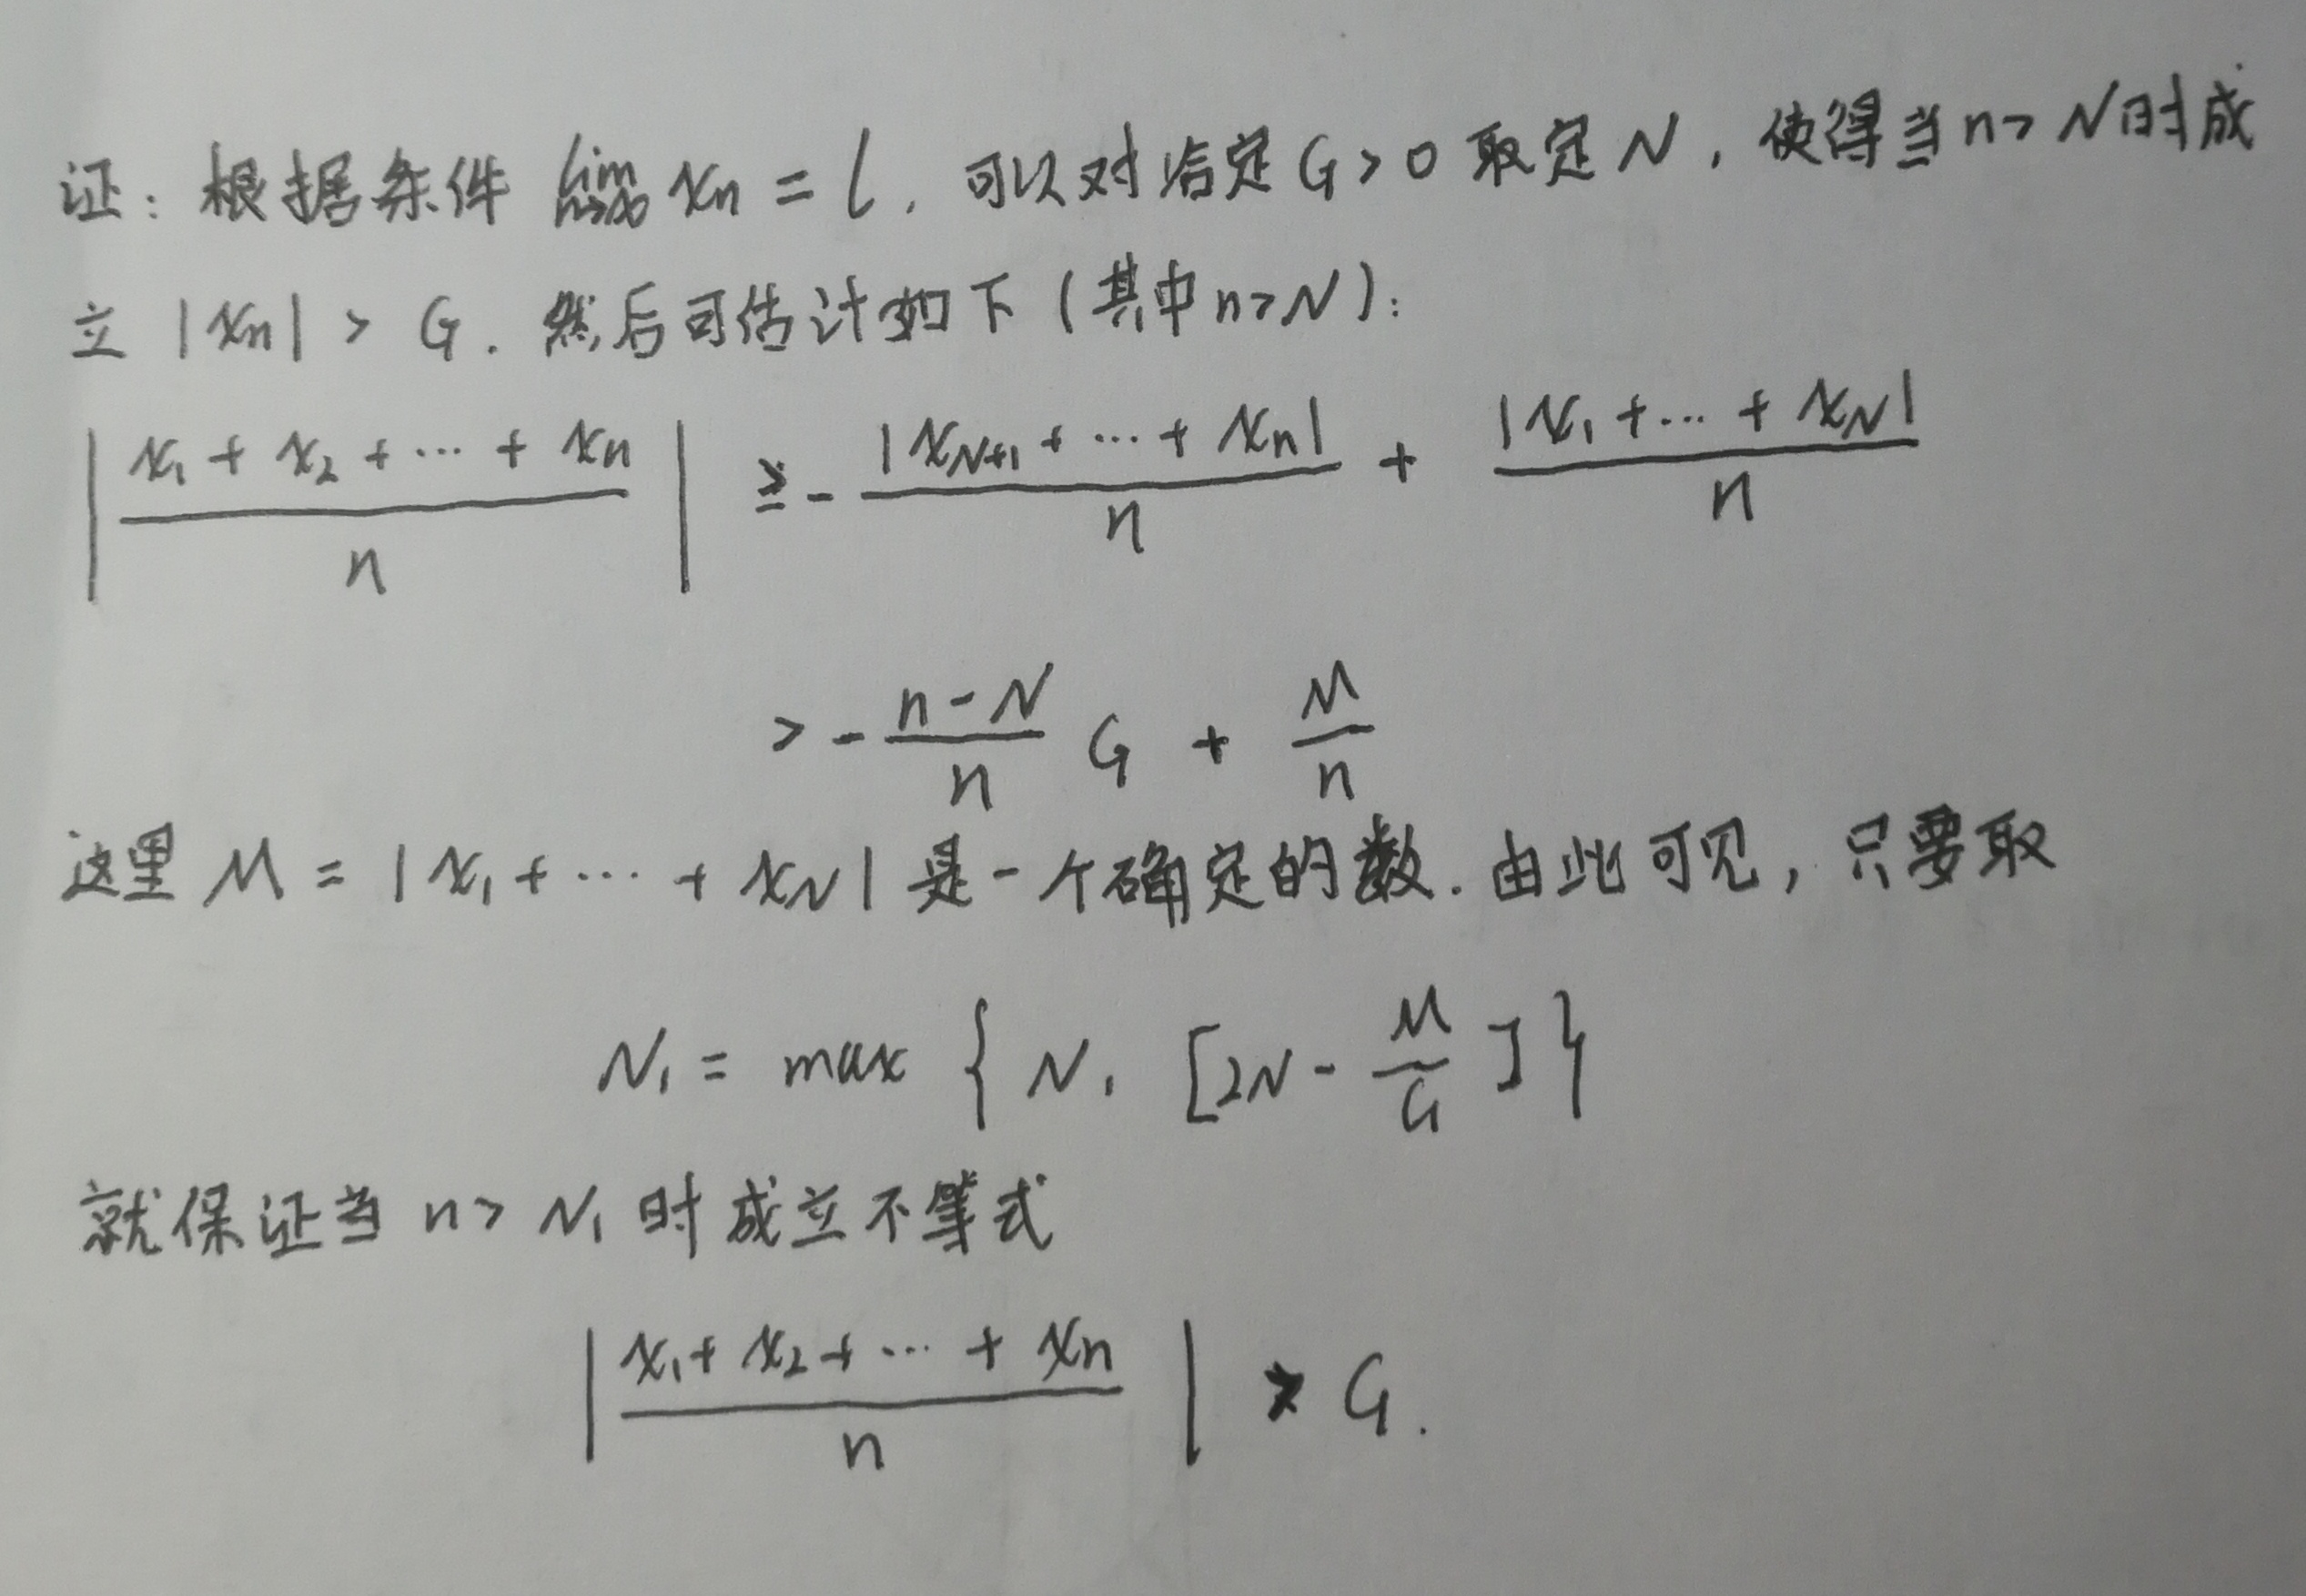 证：根据条件 lim n→∞ xn = l，可以对给定 G>0 取定 N，使得当 n>N 时成
立 |xn| > G. 然后可估计如下（其中 n>N）：
| (x₁ + x₂ + ⋯ + xn) / n | ≥ - |x_{N+1} + ⋯ + xn| / n + |x₁ + ⋯ + x_N| / n
> - (n-N)/n G + M/n
这里 M = |x₁ + ⋯ + x_N| 是一个确定的数. 由此可见，只要取
N₁ = max { N, [2N - M/G] }
就保证当 n> N₁ 时成立不等式
| (x₁ + x₂ + ⋯ + xn) / n | > G.